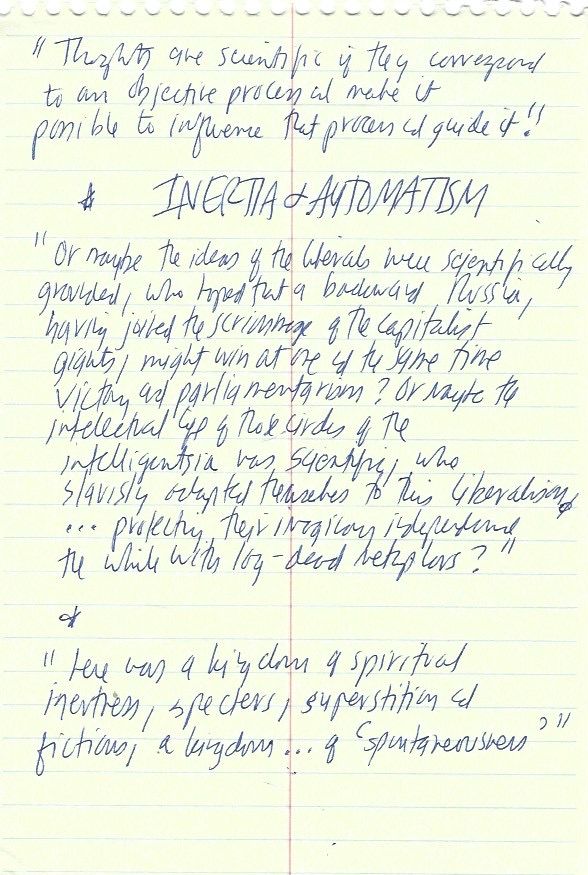 "Thoughts are scientific if they correspond
to an objective process and make it
possible to influence that process and guide it!"
* INERTIA & AUTOMATISM
"Or maybe the ideas of the liberals were scientifically
grounded, who hoped that a backward Russia,
having joined the scrimmage of the capitalist
giants, might win at one and the same time
victory and parliamentarism? Or maybe the
intellectual life of those circles of the
intelligentsia was scientific, who
slavishly adapted themselves to this liberalism,
... protecting their imaginary independence
the while with long-dead metaphors?"
*
"here was a kingdom of spiritual
inertness, specters, superstition and
fictions, a kingdom... of 'spontaneousness'"